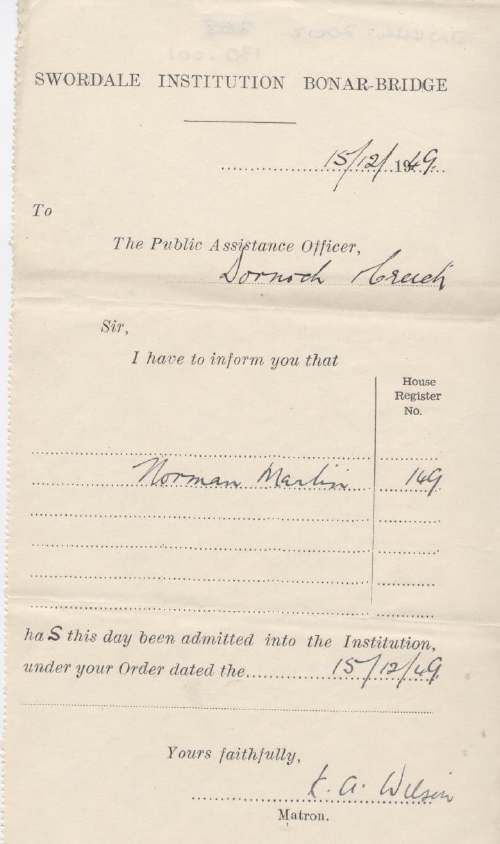 SWORDALE INSTITUTION BONAR-BRIDGE
15/12/1949.
To
The Public Assistance Officer,
Dornoch Creich
Sir,
I have to inform you that
House
Register
No.
Norman Martin 149
haS this day been admitted into the Institution,
under your Order dated the 15/12/49
Yours faithfully,
K. A. Wilson
Matron.